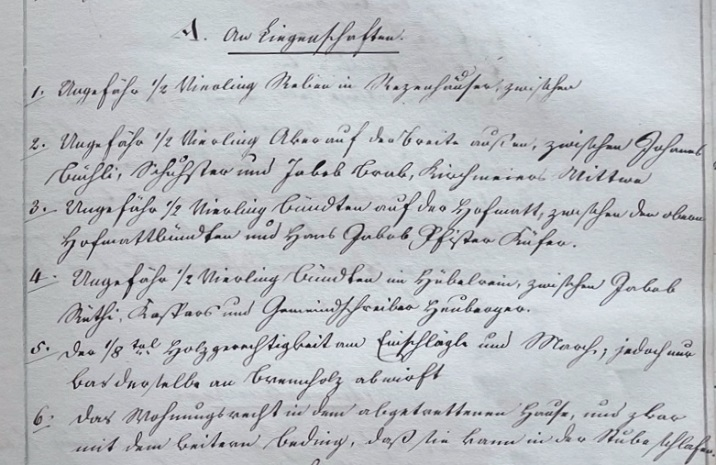 A. An Liegenschaften.
1. Ungefähr 1/2 Vierling Reben in Rezenhäuser, zwischen
2. Ungefähr 1/2 Vierling Aker auf der Breite außen, zwischen Johannes
Büchli, Schuhster und Jakob Brab, Kirchmeiers Wittwe
3. Ungefähr 1/2 Vierling Bündten auf der Hofmatt, zwischen den obern
Hofmattbündten und Hans Jakob Pfister Küfer.
4. Ungefähr 1/2 Vierling Bündten im Hübelrein, zwischen Jakob
Rüthi, Kaspars und Gemeindschreiber Heuberger.
5. Der 1/8 tel Holzgerechtigkeit am Einschlägle und March, jedoch nur
was derselbe an Brennholz abwirft
6. Das Wohnungsrecht in dem abgetrettenen Hause, und zwar
mit dem weitern Beding, daß sie kann in der Stube schlafen.